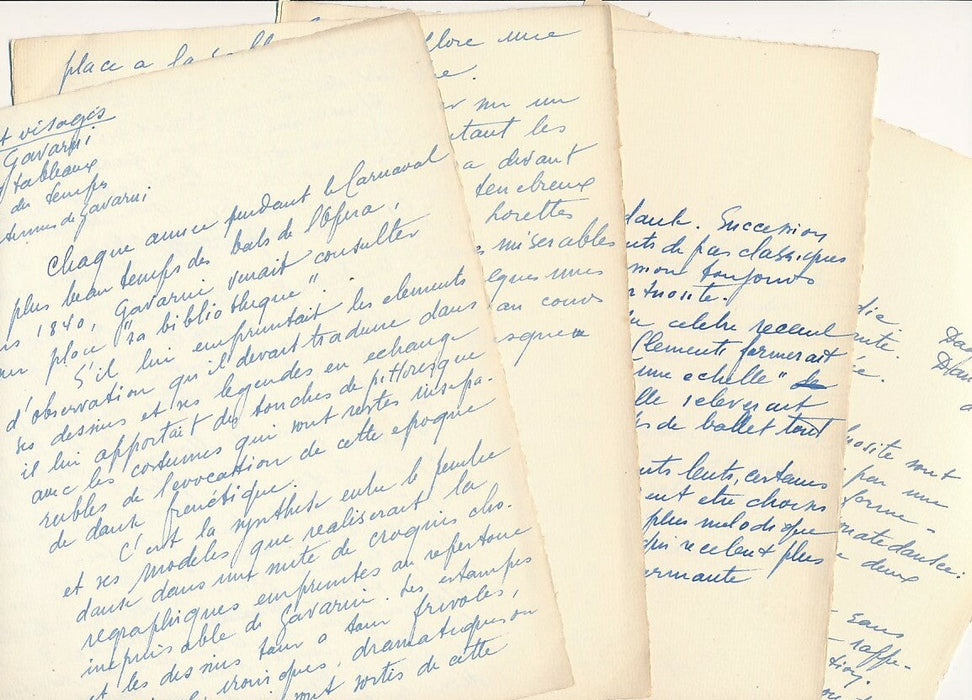 t visages
Gavarni
tableaux
du temps
Gavarni
Chaque année pendant le Carnaval
plus beau temps des bals de l'Opéra,
1840, Gavarni venait consulter
place "sa bibliothèque".
S'il lui empruntait les elements
d'observation qu'il devait traduire dans
ses dessins et ses legendes en echange
il lui apportait des touches de pittoresque
avec les costumes qui sont restés insepa-
rables de l'evocation de cette epoque
de danse frenétique.
C'est la synthèse entre le peintre
et ses modèles que realiserait la
danse dans une suite de croquis cho-
regraphiques empruntés au repertoire
inepuisable de Gavarni. Les estampes
et les dessins tour a tour frivoles,
ironiques, dramatiques ou
sont sortis de cette
place a la
une
sur un
tant les
a devant
tenebreux
lorettes
miserables
elques unes
au cours
Succession
de pas classiques
toujours
celebre recueil
Clementi formerait
une echelle" de
elle s'eleverait
de ballet tout
lents, certains
ent etre choisis
plus melodique
qui recelent plus
die.
osite sont
par une
forme -
sonate dansée:
deux
sans
raffe-